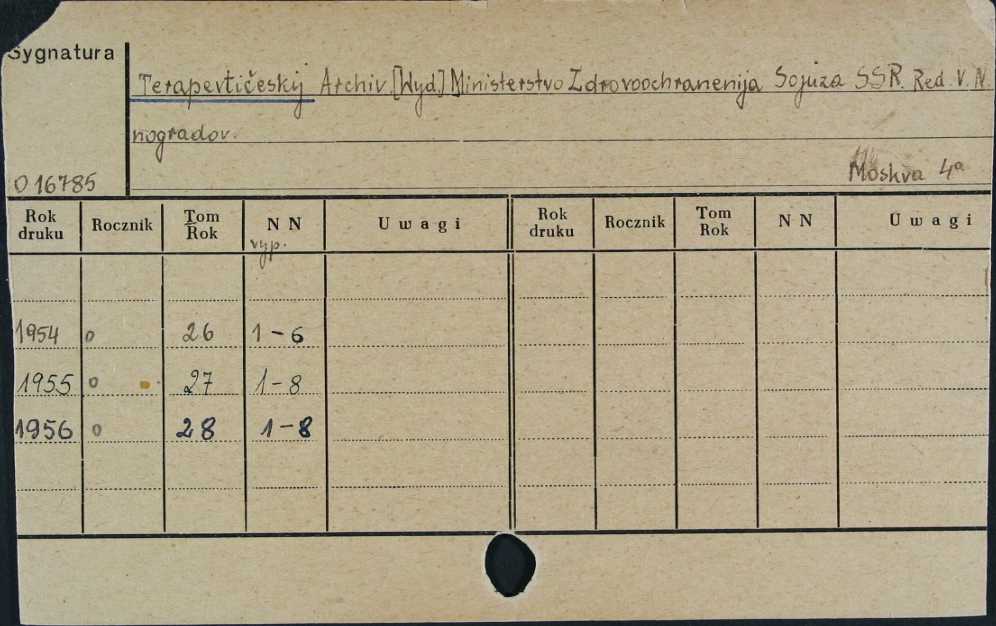 Sygnatura
Terapevtičeskij Archiv. [Wyd.] Ministerstvo Zdrovoochranenija Sojuza SSR. Red. V. N.
nogradov.
O 16785
Moskva 4°
Rok druku Rocznik Tom Rok N N Uwagi Rok druku Rocznik Tom Rok N N Uwagi
vyp.
1954 o 26 1-6
1955 o 27 1-8
1956 o 28 1-8